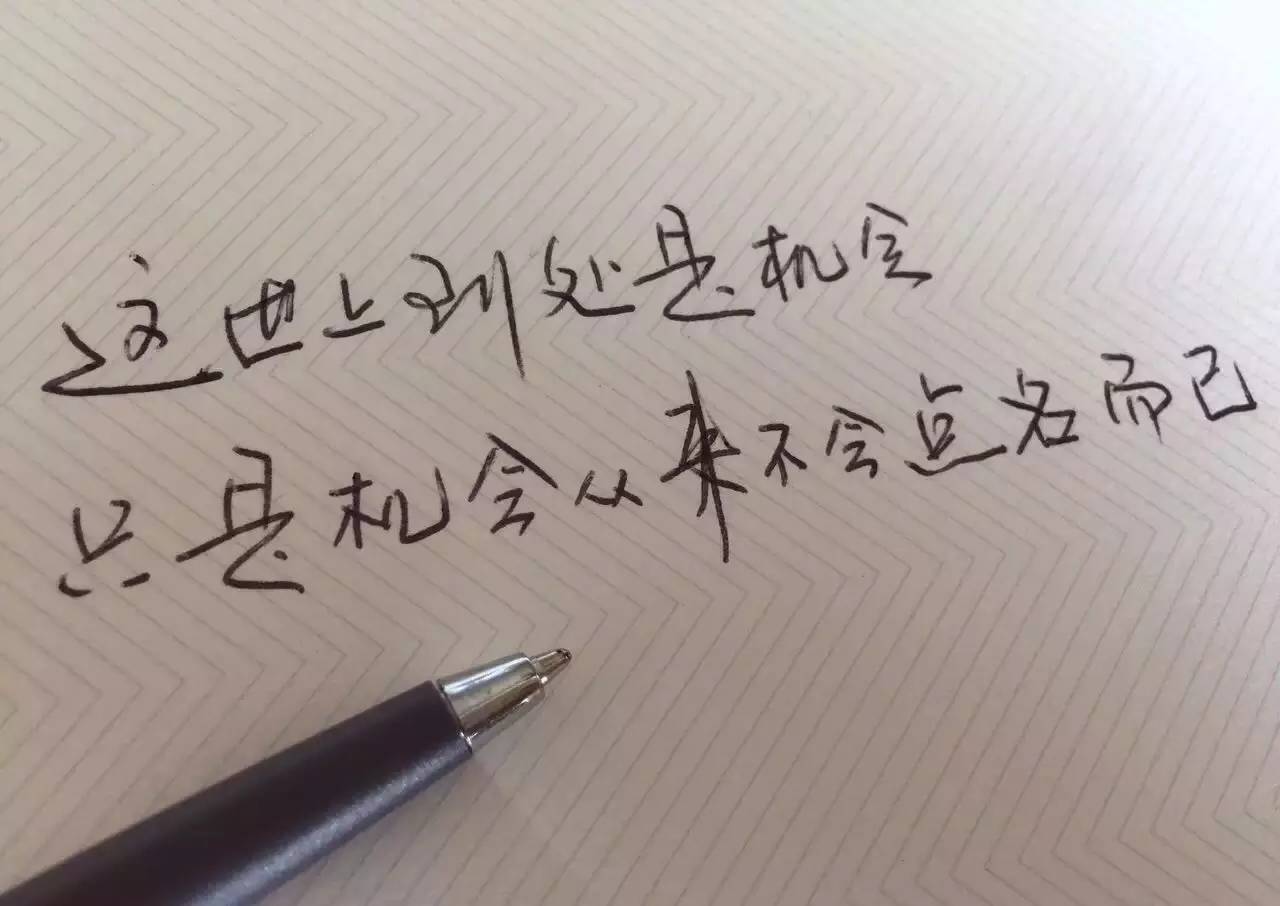 这世上到处是机会
只是机会从来不会点名而已